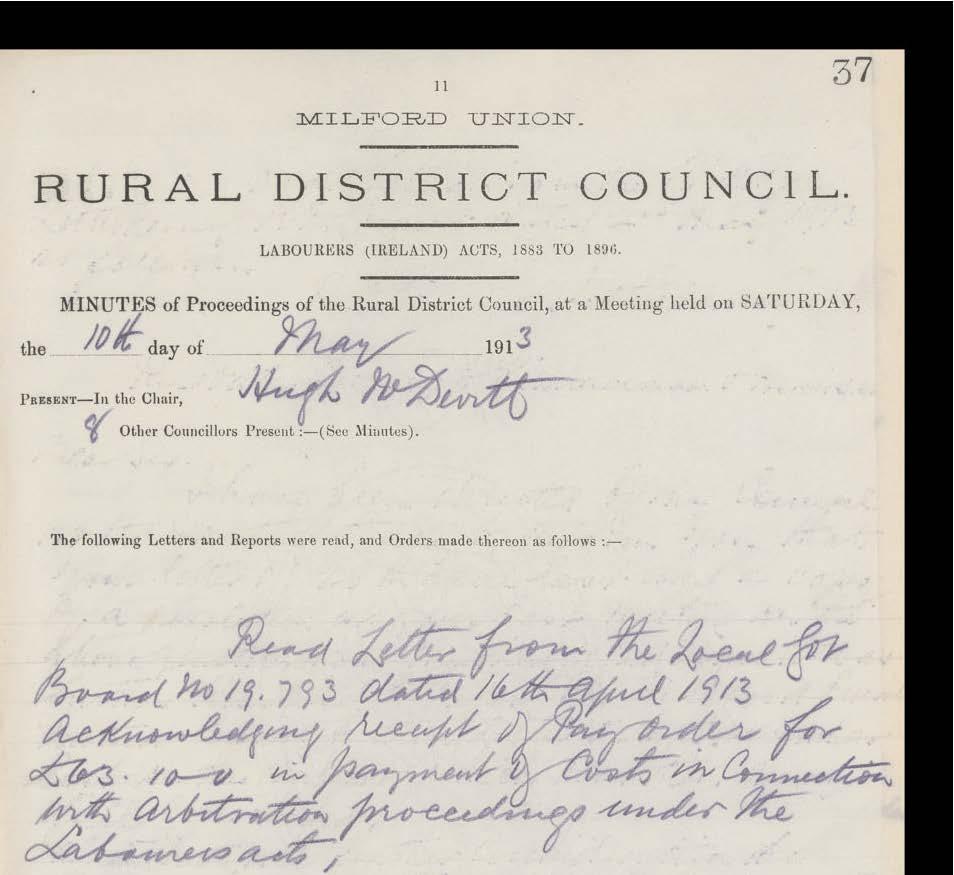 37
11
MILFORD UNION.
RURAL DISTRICT COUNCIL.
LABOURERS (IRELAND) ACTS, 1883 TO 1896.
MINUTES of Proceedings of the Rural District Council, at a Meeting held on SATURDAY,
the 10th day of May 1913
PRESENT—In the Chair, Hugh McDevitt
8 Other Councillors Present :—(See Minutes).
The following Letters and Reports were read, and Orders made thereon as follows :—
Read Letter from the Local Gov
Board No 19.793 dated 16th April 1913
Acknowledging receipt of Pay order for
£63. 10-0 in payment of Costs in Connection
with Arbitration proceedings under the
Labourers acts,